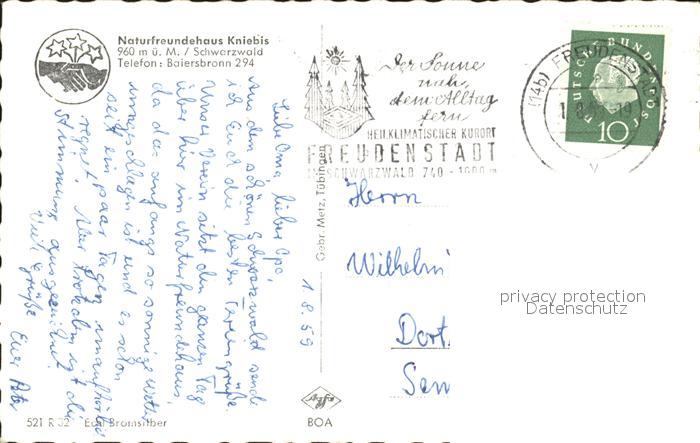 Naturfreundehaus Kniebis
960 m ü. M. / Schwarzwald
Telefon: Baiersbronn 294
Der Sonne
nah,
dem Alltag
fern
HEILKLIMATISCHER KURORT
FREUDENSTADT
SCHWARZWALD 740 - 1000 m
(14b) FREUDENSTADT
1.8.59-19
DEUTSCHE BUNDESPOST
10
1.8.59
Liebe Oma, lieber Opa!
Aus dem schönen Schwarzwald sende
ich Euch die besten Feriengrüße.
Unser Verein sitzt den ganzen Tag
über hier im Naturfreundehaus,
da das anfangs so sonnige Wetter
umgeschlagen ist und es schon
seit ein paar Tagen unaufhörlich
regnet. Aber trotzdem ist die
Stimmung ausgezeichnet.
Viele Grüße
Euer Peter
Gebr. Metz, Tübingen
Herrn
Wilhelm
Dort
privacy protection
Datenschutz
521 R 32 Echt Bromsilber
Agfa
BOA